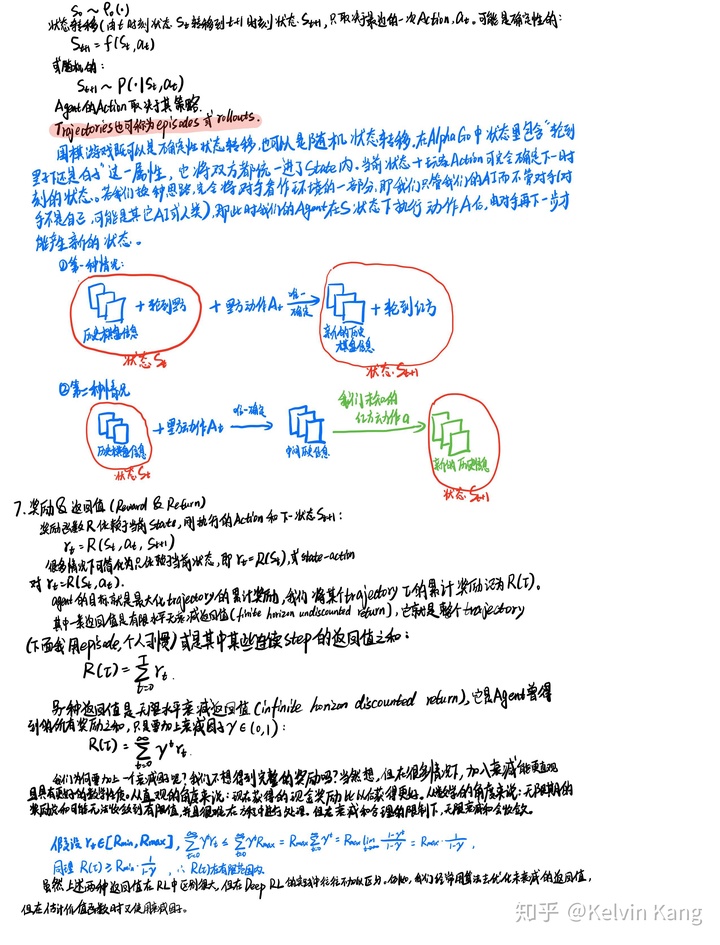 S₀ ~ ρ₀(·)
状态转移(由t时刻状态 Sₜ 转移到t+1时刻状态 Sₜ₊₁，只取决于最近的一次Action, aₜ。可能是确定性的:
Sₜ₊₁ = f(Sₜ, aₜ)
或随机的:
Sₜ₊₁ ~ P(·|Sₜ, aₜ)
Agent的Action取决于其策略.
Trajectories也可称为episodes或rollouts.
围棋游戏既可以是确定性状态转移，也可以是随机状态转移，在AlphaGo中状态里包含"轮到
黑子还是白子"这一属性，它将双方都统一进了State内。当前状态+玩家Action可完全确定下一时
刻的状态。若我们换种思路，完全将对手看作环境的一部分，即我们只管我们的AI而不管对手(对
手不是自己，可能是其它AI或人类)，那此时我们的Agent在S状态下执行动作A后，由对手再下一步才
能产生新的状态。
①第一种情况:
+ 轮到黑方 + 黑方动作Aₜ 唯一确定 + 轮到红方
历史棋盘信息 新的历史棋盘信息
状态Sₜ 状态Sₜ₊₁
②第二种情况
+ 黑方动作Aₜ 唯一确定 我们未知的红方动作a
历史棋盘信息 中间历史信息 新的历史信息
状态Sₜ 状态Sₜ₊₁
7. 奖励&返回值 (Reward & Return)
奖励函数R依赖于当前state，刚执行的Action和下一状态Sₜ₊₁:
rₜ = R(Sₜ, aₜ, Sₜ₊₁)
很多情况下可简化为只依赖于当前状态，即 rₜ=R(Sₜ)，或state-action
对 rₜ=R(Sₜ, aₜ).
agent的目标就是最大化trajectory的累计奖励，我们将某个trajectory τ的累计奖励记为R(τ).
其中一类返回值是有限水平无衰减返回值(finite horizon undiscounted return)，它就是整个trajectory
(下面我用episode,个人习惯)或是其中某些连续step的返回值之和:
R(τ) = ∑ₜ₌₀ᵀ rₜ.
另一种返回值是无限水平衰减返回值(infinite horizon discounted return)，它是Agent曾得
到的所有奖励之和，只是要加上衰减因子γ∈(0,1):
R(τ) = ∑ₜ₌₀^∞ γᵗrₜ.
我们为何要加上一个衰减因子呢？我们不想得到完整的奖励吗？当然想，但在很多情况下，加入衰减能更直观
且具有更好的数学性质。从直观的角度来说：现在获得的现金奖励比以后获得更好。从数学的角度来说：无限期的
奖励总和可能无法收敛到有限值，并且很难在方程中进行处理。但在衰减和合理的限制下，无限衰减和会收敛。
假设 rₜ∈[Rmin, Rmax], ∑ₜ₌₀^∞ γᵗrₜ ≤ ∑ₜ₌₀^∞ γᵗRmax = Rmax ∑ₜ₌₀^∞ γᵗ = Rmax lim (1-γᵗ)/(1-γ) = Rmax · 1/(1-γ),
同理 R(τ) ≥ Rmin · 1/(1-γ), ∴ R(τ)在有限范围内.
虽然上述两种返回值在RL中区别很大，但在Deep RL的实践中往往不加以区分。例如，我们经常用算法去优化未衰减的返回值，
但在估计价值函数时又使用衰减因子。
知乎 @Kelvin Kang